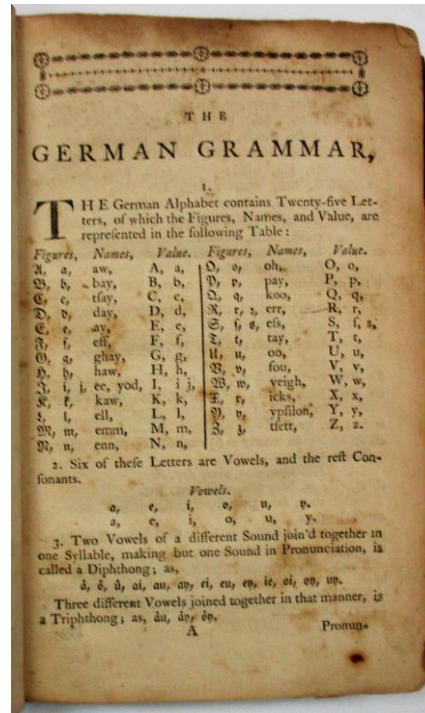 THE
GERMAN GRAMMAR,
1.
THE German Alphabet contains Twenty-five Let-
ters, of which the Figures, Names, and Value, are
repreſented in the following Table:
Figures, Names, Value. Figures, Names, Value.
A, a, aw, A, a, O, o, oh, O, o,
B, b, bay, B, b, P, p, pay, P, p,
C, c, tſay, C, c, Q, q, koo, Q, q,
D, d, day, D, d, R, r, ꝛ, err, R, r,
E, e, ay, E, e, S, ſ, s, eſs, S, ſ, s,
F, f, eff, F, f, T, t, tay, T, t,
G, g, ghay, G, g, U, u, oo, U, u,
H, h, haw, H, h, V, v, fou, V, v,
I, i, j, ee, yod, I, i j, W, w, veigh, W, w,
K, k, kaw, K, k, X, x, icks, X, x,
L, l, ell, L, l, Y, y, ypſilon, Y, y,
M, m, emm, M, m, Z, z, tſett, Z, z.
N, n, enn, N, n,
2. Six of theſe Letters are Vowels, and the reſt Con-
ſonants.
Vowels.
a, e, i, o, u, y.
a, e, i, o, u, y.
3. Two Vowels of a different Sound join'd together in
one Syllable, making but one Sound in Pronunciation, is
called a Diphthong; as,
aͤ, oͤ, uͤ, ai, au, ay, ei, eu, ey, ie, oi, oy, uy.
Three different Vowels joined together in that manner, is
a Triphthong; as, aͤu, aͤy, oͤy.
A
Pronun-